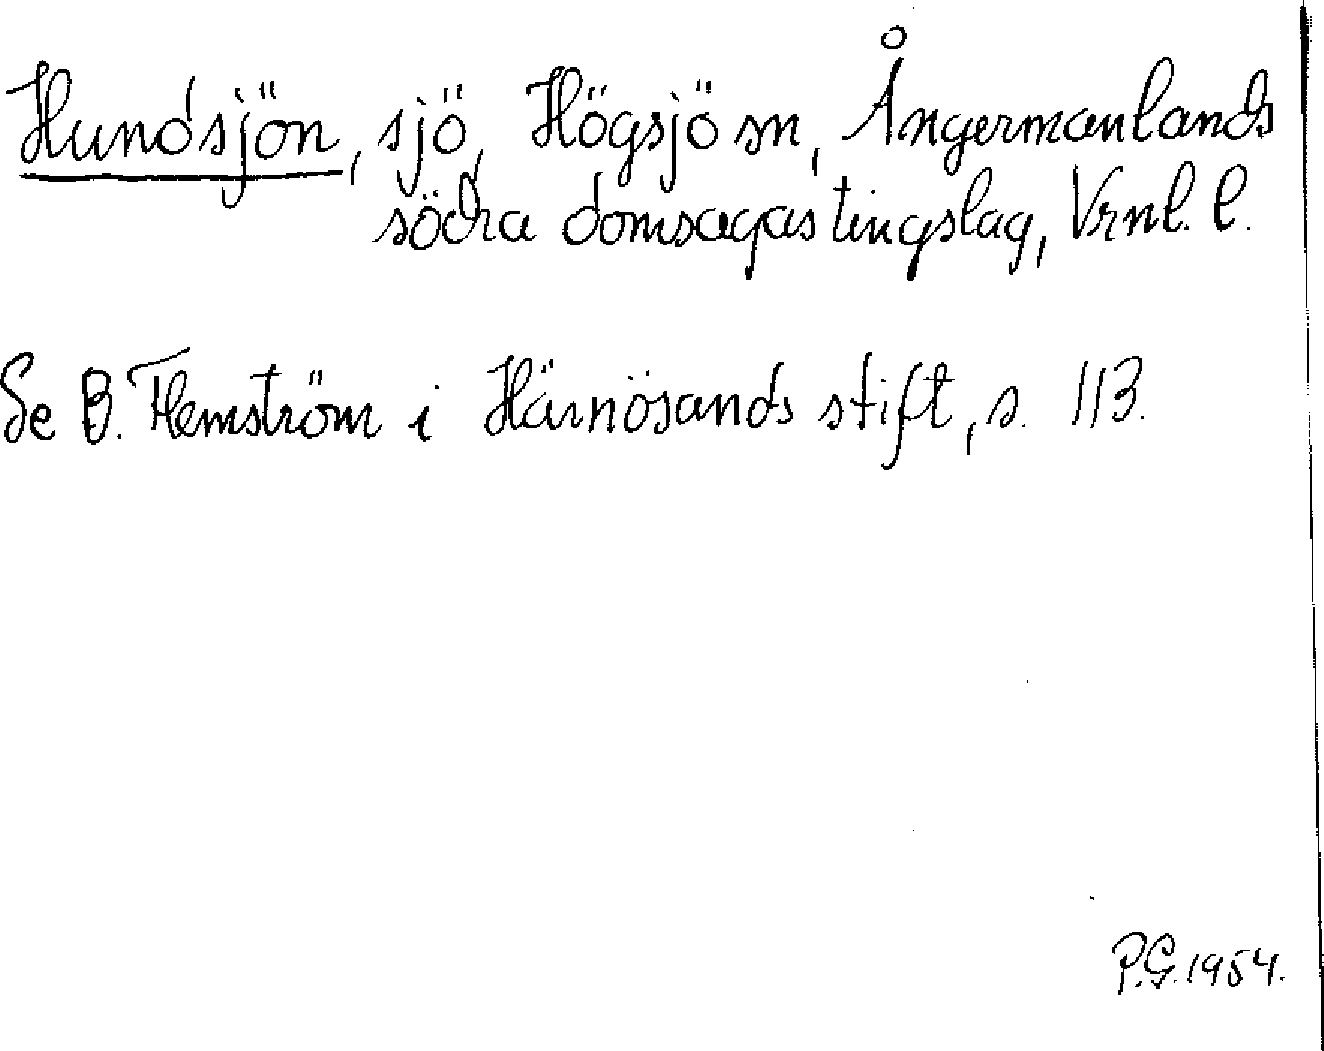 Hundsjön, sjö, Högsjö sn, Ångermanlands
södra domsagas tingslag, Vrnl. l.
Se B. Flemström i Härnösands stift, s. 113.
P.G. 1954.